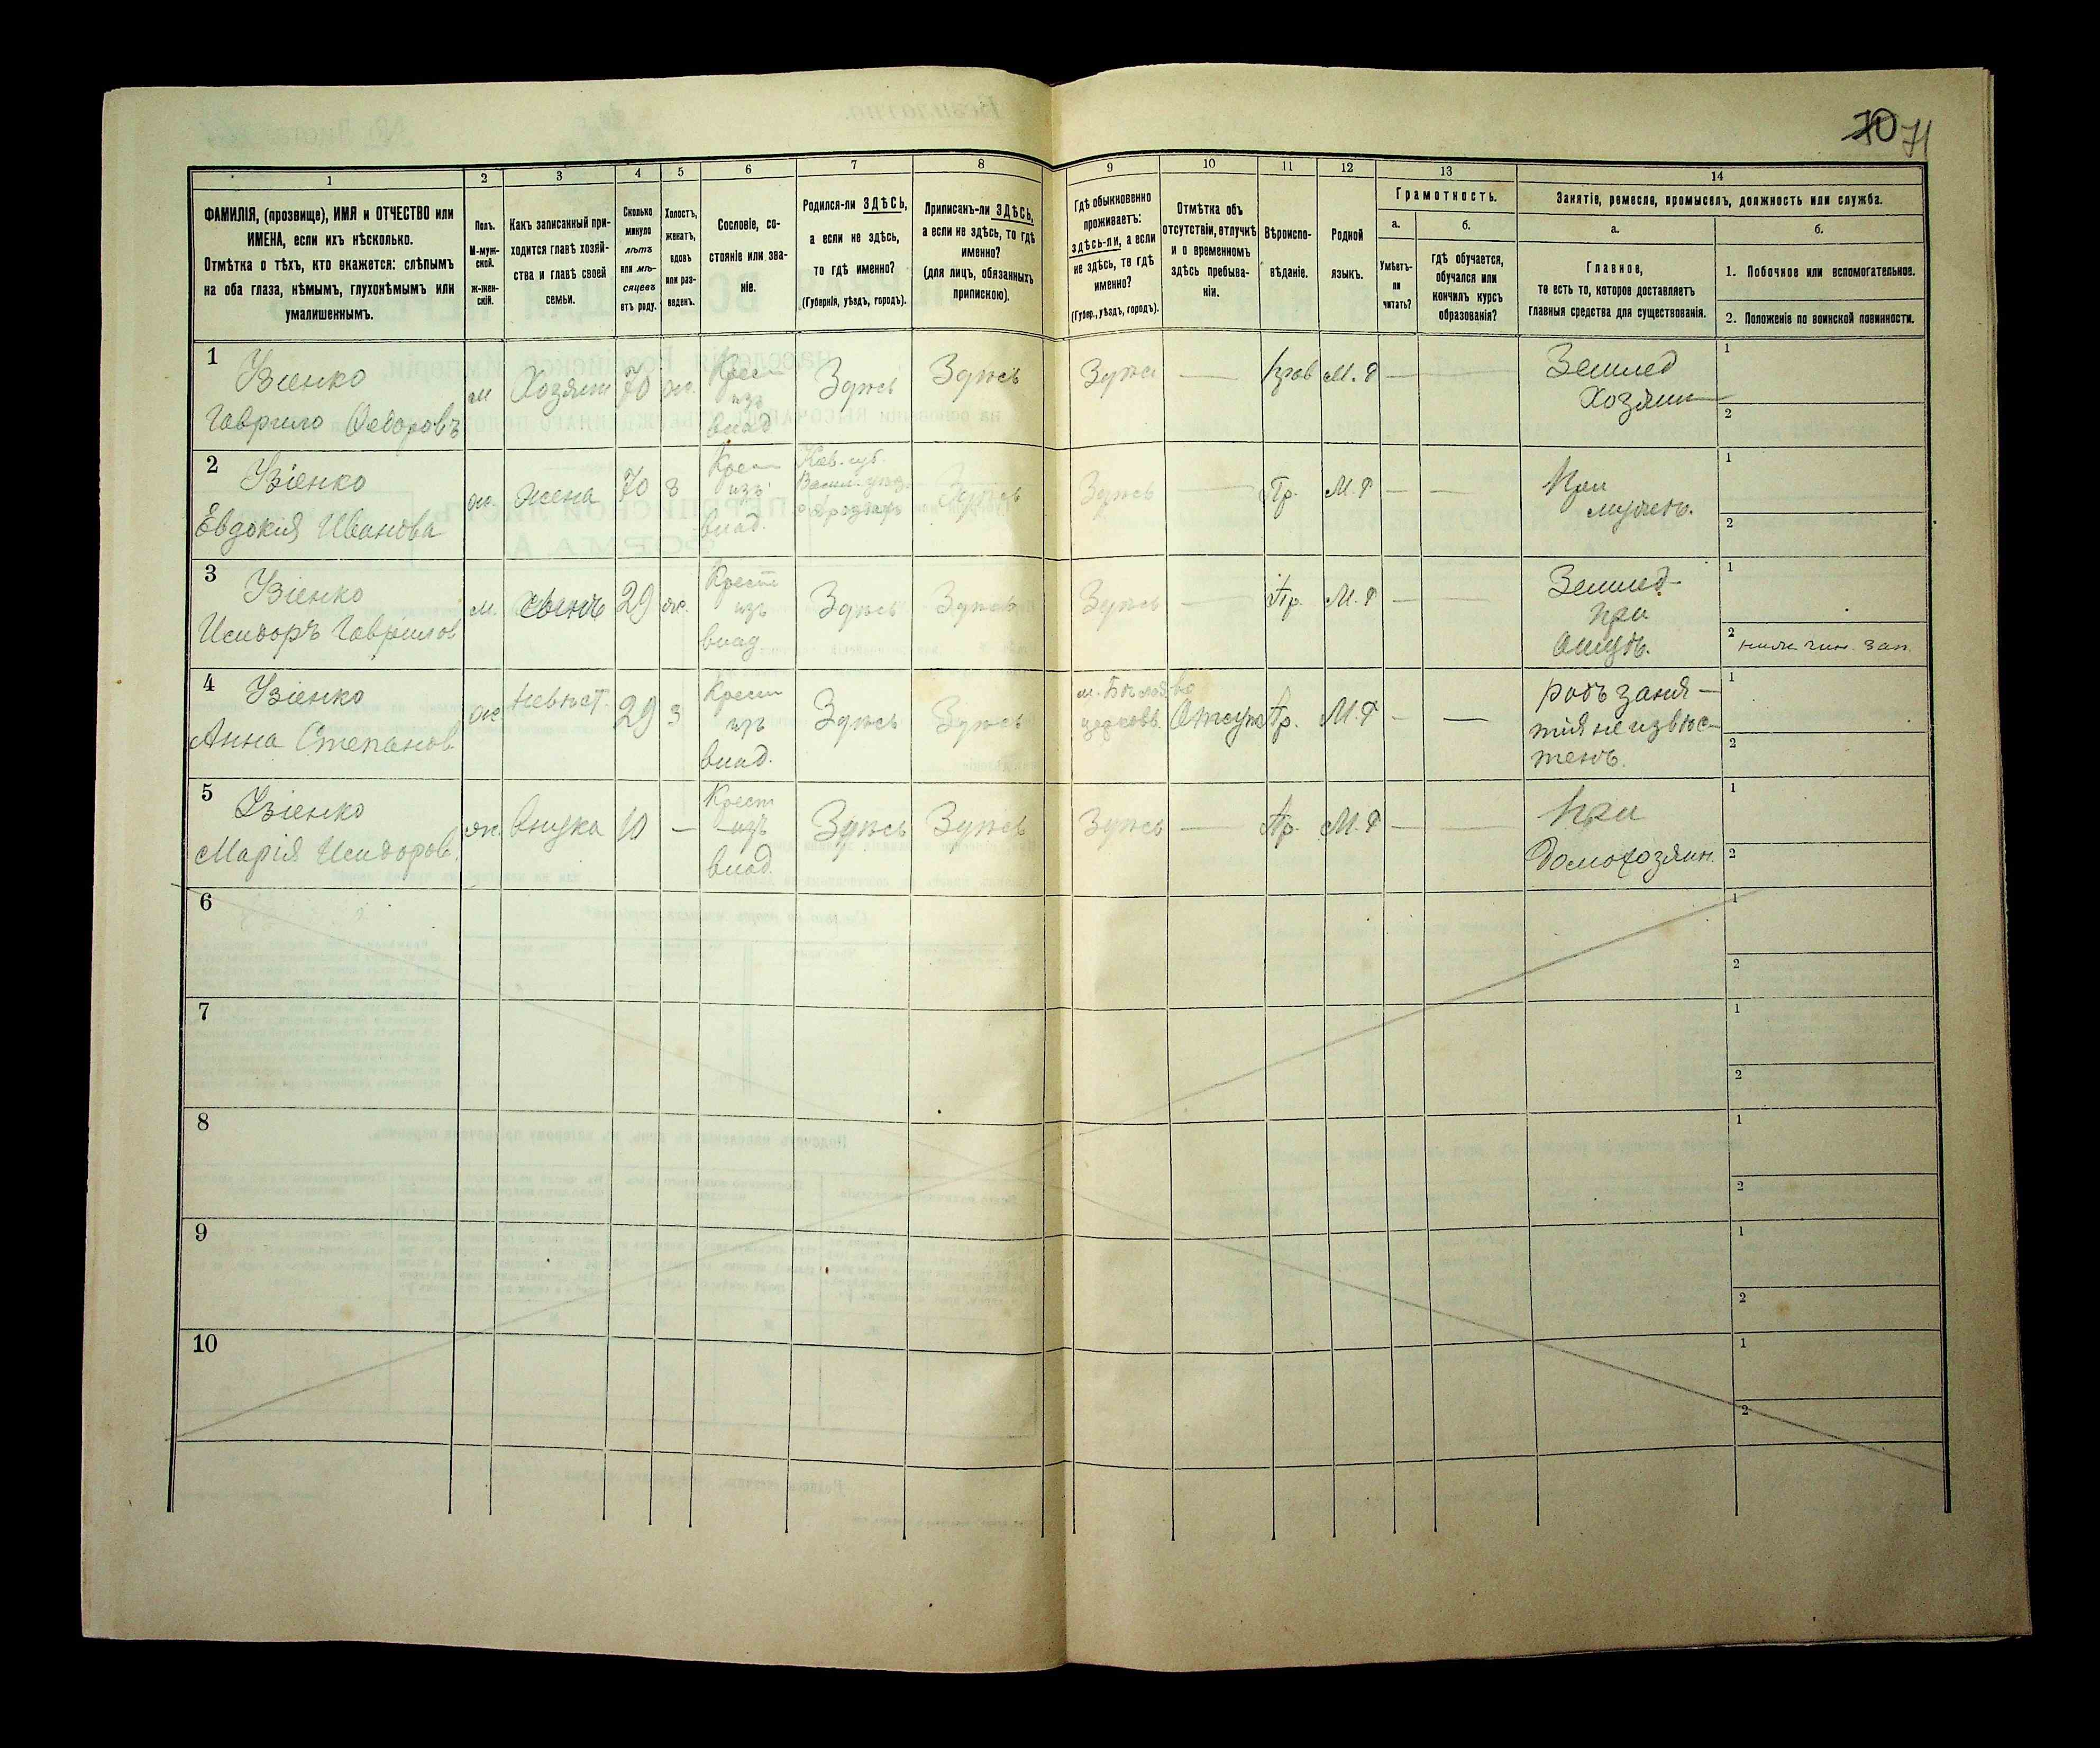 70 71
1 2 3 4 5 6 7 8 9 10 11 12 13 14
ФАМИЛІЯ, (прозвище), ИМЯ и ОТЧЕСТВО или
ИМЕНА, если ихъ нѣсколько.
Отмѣтка о тѣхъ, кто окажется: слѣпымъ
на оба глаза, нѣмымъ, глухонѣмымъ или
умалишеннымъ.
Полъ.
М-муж-
ской.
ж-жен-
скій.
Какъ записанный при-
ходится главѣ хозяй-
ства и главѣ своей
семьи.
Сколько
минуло
лѣтъ
или мѣ-
сяцевъ
отъ роду.
Холостъ,
женатъ,
вдовъ
или раз-
веденъ.
Сословіе, со-
стояніе или зва-
ніе.
Родился-ли ЗДѢСЬ,
а если не здѣсь,
то гдѣ именно?
(Губернія, уѣздъ, городъ).
Приписанъ-ли ЗДѢСЬ,
а если не здѣсь, то гдѣ
именно?
(для лицъ, обязанныхъ
припискою).
Гдѣ обыкновенно
проживаетъ:
здѣсь-ли, а если
не здѣсь, то гдѣ
именно?
(Губер., уѣздъ, городъ).
Отмѣтка объ
отсутствіи, отлучкѣ
и о временномъ
здѣсь пребыва-
ніи.
Вѣроиспо-
вѣданіе.
Родной
языкъ.
Грамотность.
а.
Умѣетъ-
ли
читать?
б.
гдѣ обучается,
обучался или
кончилъ курсъ
образованія?
Занятіе, ремесло, промыселъ, должность или служба.
а.
Главное,
то есть то, которое доставляетъ
главныя средства для существованія.
б.
1. Побочное или вспомогательное.
2. Положеніе по воинской повинности.
1 Узіенко
Гаврило Ѳедоровъ
м Хозяин 70 ж. Крест
изъ
влад
Здѣсь Здѣсь Здѣсь — прав М. Р — —
Землед
Хозяин
1
2
2 Узіенко
Евдокия Иванова
ж. жена 70 з Крест
изъ
влад.
Кіев. губ.
Васил. уѣз.
Здѣсь Здѣсь — Пр. М. Р — —
При
мужѣ.
1
2
3 Узіенко
Исидоръ Гаврилов
м. сынъ 29 ж. Крест
изъ
влад
Здѣсь Здѣсь Здѣсь — Пр. М. Р — —
Землед
при
Отцѣ.
1
2 ниж. чин. зап.
4 Узіенко
Анна Степанов
ж. невѣст. 29 з Крест
изъ
влад.
Здѣсь Здѣсь
м. Бѣлая
церковь.
Отсут Пр. М. Р — —
родъ заня-
тія не извѣс-
тенъ.
1
2
5 Узіенко
Марія Исидоров.
ж. внучка 10 — Крест
изъ
влад.
Здѣсь Здѣсь Здѣсь — Пр. М. Р — —
При
Домохозяин.
1
2
6 1
2
7 1
2
8 1
2
9 1
2
10 1
2